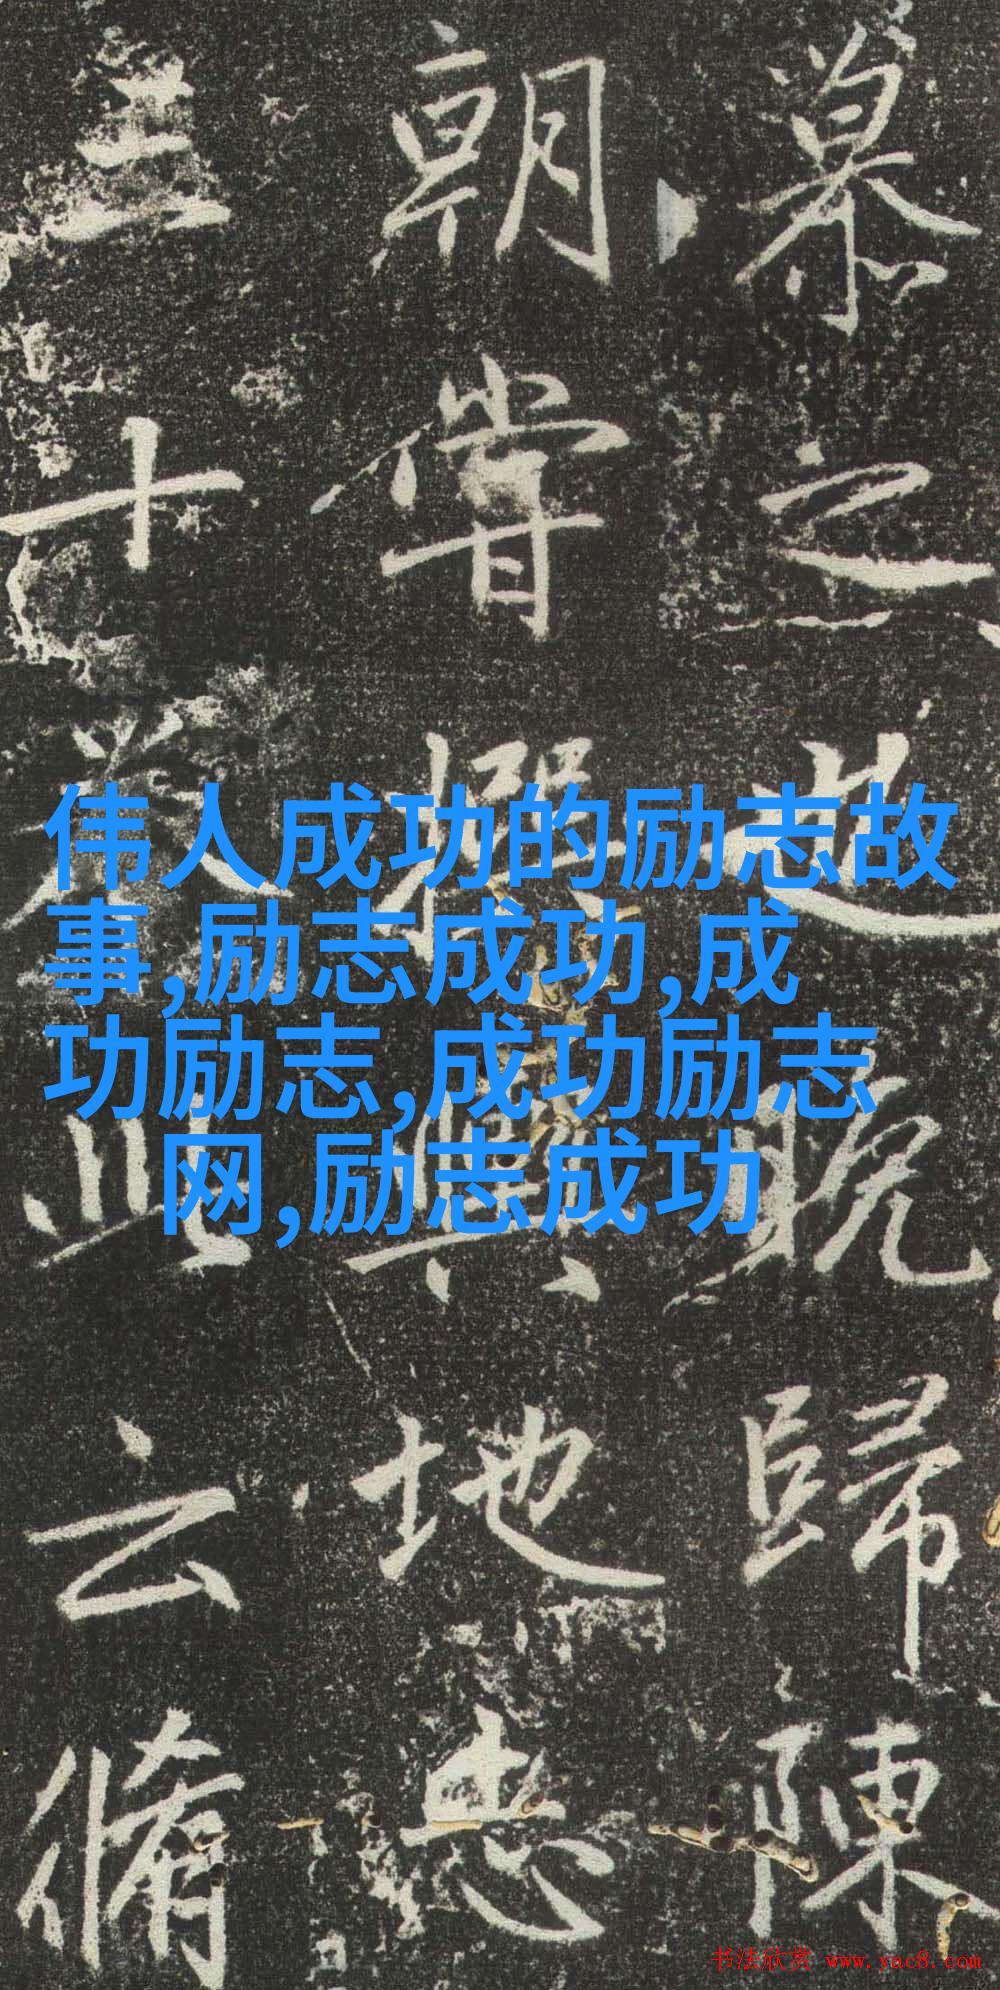 慕之也既歸陳
朝嘗與地志
三十卷此云脩
伟人成功的励志故
事,励志成功,成
功励志,成功励志
网,励志成功
书法欣赏 www.yac8.com